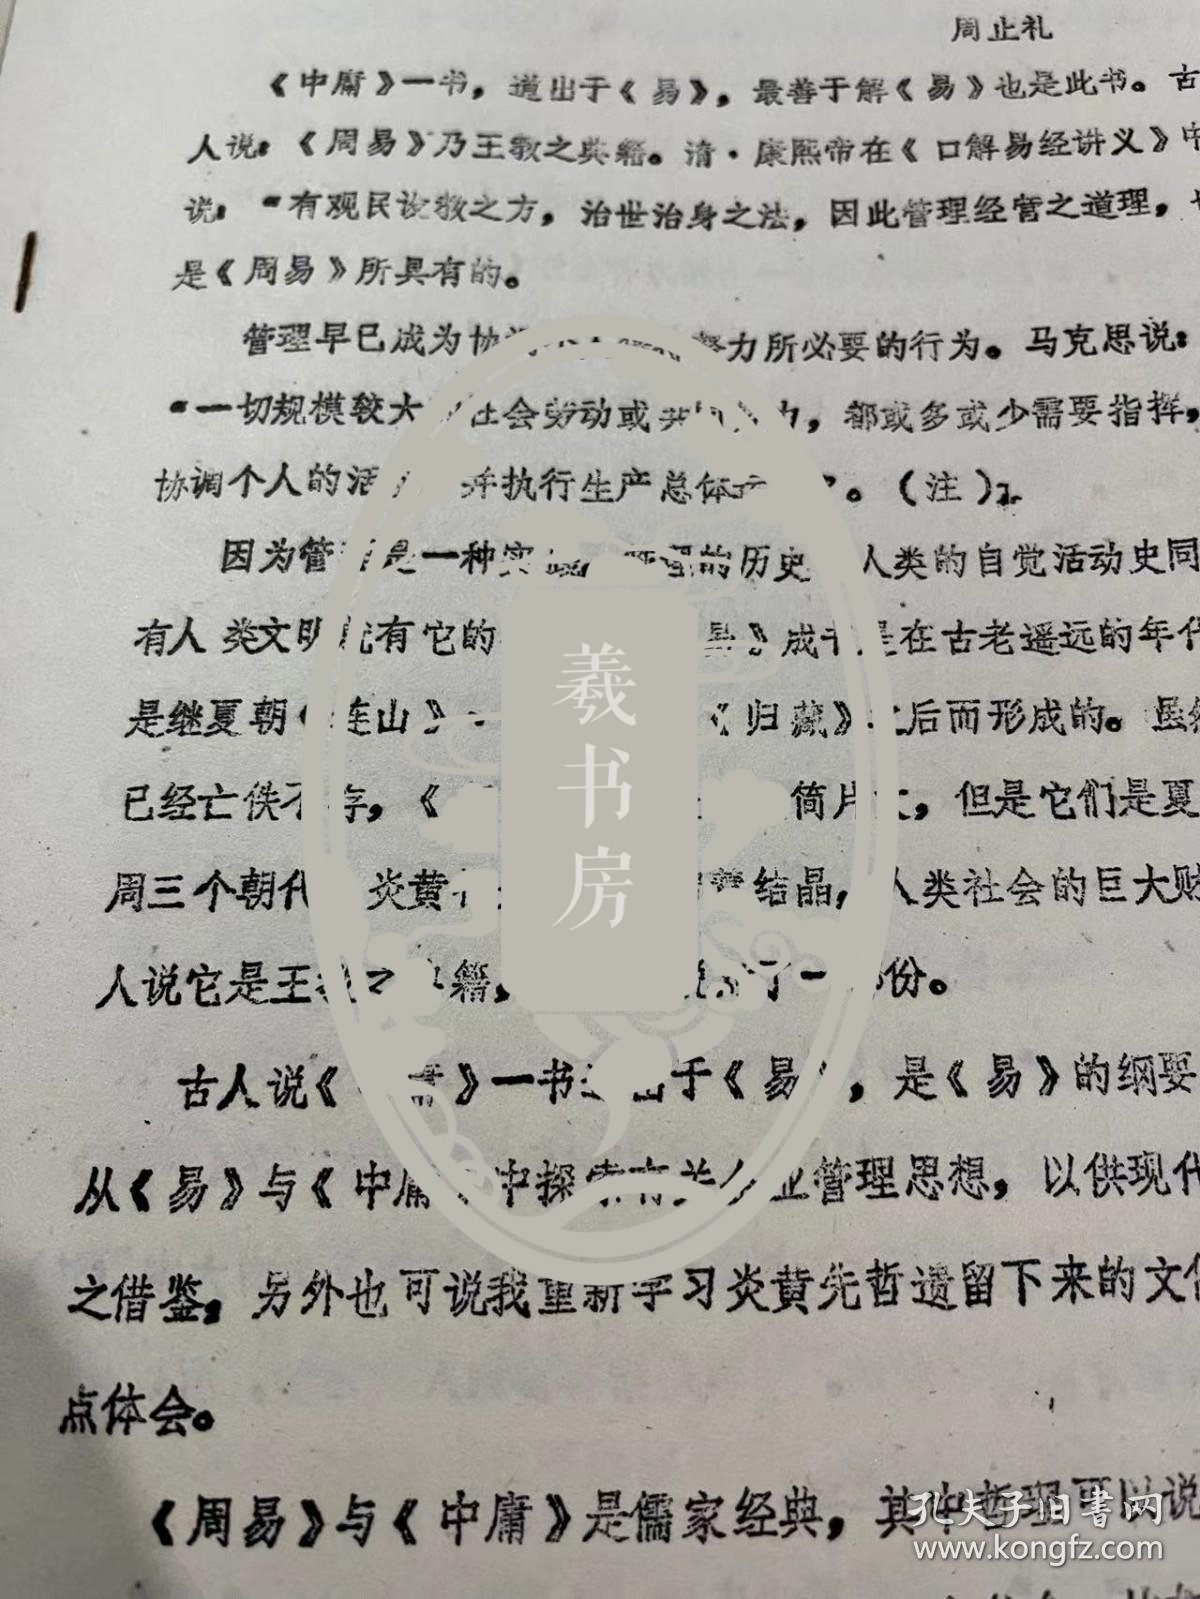 周止礼
《中庸》一书，道出于《易》，最善于解《易》也是此书。古
人说：《周易》乃王教之典籍。清·康熙帝在《口解易经讲义》中
说：“有观民设教之方，治世治身之法，因此管理经营之道理，
是《周易》所具有的。
管理早已成为协 努力所必要的行为。马克思说：
“一切规模较大 社会劳动或共 ，都或多或少需要指挥，
协调个人的活 并执行生产总体 。（注）1
因为管 是一种实 的历史 人类的自觉活动史同
有人类文明就有它的 易》成书是在古老遥远的年代
是继夏朝《连山》 《归藏》之后而形成的。虽然
已经亡佚不存，《 简片文，但是它们是夏
周三个朝代 炎黄 结晶，人类社会的巨大财
人说它是王教之典籍， 了一部份。
古人说《中庸》一书道出于《易》，是《易》的纲要
从《易》与《中庸》中探索有关企业管理思想，以供现代
之借鉴，另外也可说我重新学习炎黄先哲遗留下来的文化
点体会。
《周易》与《中庸》是儒家经典，其中哲理可以说
羲书房
孔夫子旧书网
www.kongfz.com